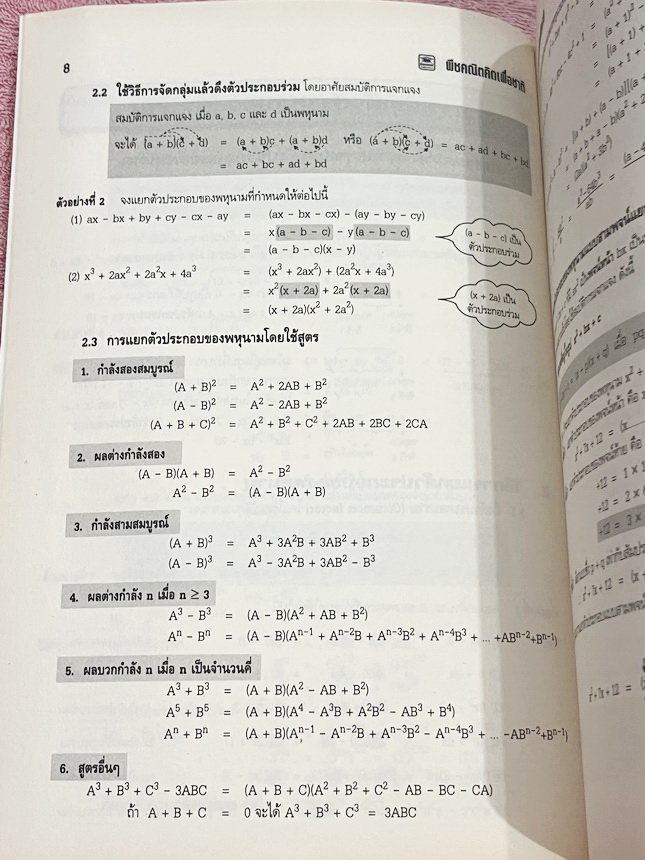 8 พีชคณิตคิดเพื่อชาติ
2.2 ใช้วิธีการจัดกลุ่มแล้วดึงตัวประกอบร่วม โดยอาศัยสมบัติการแจกแจง
สมบัติการแจกแจง เมื่อ a, b, c และ d เป็นพหุนาม
จะได้ (a + b)(c + d) = (a + b)c + (a + b)d หรือ (a + b)(c + d) = ac + ad + bc + bd
= ac + bc + ad + bd
ตัวอย่างที่ 2 จงแยกตัวประกอบของพหุนามที่กำหนดให้ต่อไปนี้
(1) ax – bx + by + cy – cx – ay = (ax – bx – cx) – (ay – by – cy)
= x(a – b – c) – y(a – b – c)
= (a – b – c)(x – y)
(a – b – c) เป็น
ตัวประกอบร่วม
(2) x³ + 2ax² + 2a²x + 4a³ = (x³ + 2ax²) + (2a²x + 4a³)
= x²(x + 2a) + 2a²(x + 2a)
= (x + 2a)(x² + 2a²)
(x + 2a) เป็น
ตัวประกอบร่วม
2.3 การแยกตัวประกอบของพหุนามโดยใช้สูตร
1. กำลังสองสมบูรณ์
(A + B)² = A² + 2AB + B²
(A – B)² = A² – 2AB + B²
(A + B + C)² = A² + B² + C² + 2AB + 2BC + 2CA
2. ผลต่างกำลังสอง
(A – B)(A + B) = A² – B²
A² – B² = (A – B)(A + B)
3. กำลังสามสมบูรณ์
(A + B)³ = A³ + 3A²B + 3AB² + B³
(A – B)³ = A³ – 3A²B + 3AB² – B³
4. ผลต่างกำลัง n เมื่อ n ≥ 3
A³ – B³ = (A – B)(A² + AB + B²)
Aⁿ – Bⁿ = (A – B)(Aⁿ⁻¹ + Aⁿ⁻²B + Aⁿ⁻³B² + Aⁿ⁻⁴B³ + ... +ABⁿ⁻²+Bⁿ⁻¹)
5. ผลบวกกำลัง n เมื่อ n เป็นจำนวนคี่
A³ + B³ = (A + B)(A² – AB + B²)
A⁵ + B⁵ = (A + B)(A⁴ – A³B + A²B² – AB³ + B⁴)
Aⁿ + Bⁿ = (A + B)(Aⁿ⁻¹ – Aⁿ⁻²B + Aⁿ⁻³B² – Aⁿ⁻⁴B³ + ... –ABⁿ⁻²+Bⁿ⁻¹)
6. สูตรอื่นๆ
A³ + B³ + C³ – 3ABC = (A + B + C)(A² + B² + C² – AB – BC – CA)
ถ้า A + B + C = 0 จะได้ A³ + B³ + C³ = 3ABC